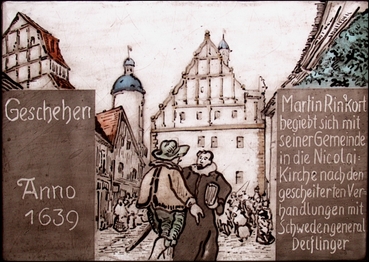 Geschehen
Anno
1639
Martin Rinkart
begiebt sich mit
seiner Gemeinde
in die Nicolai-
Kirche nach den
gescheiterten Ver-
handlungen mit
Schwedengeneral
Derflinger